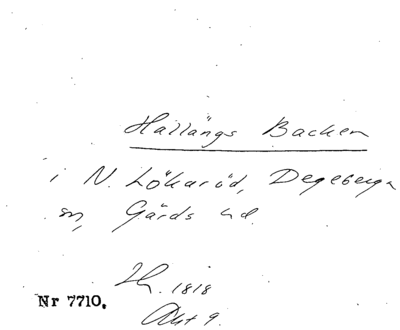 Hallängs Backen
i N. Lökaröd, Degeberga
sn, Gärds hd.
1818
Nr 7710.
Akt 9.